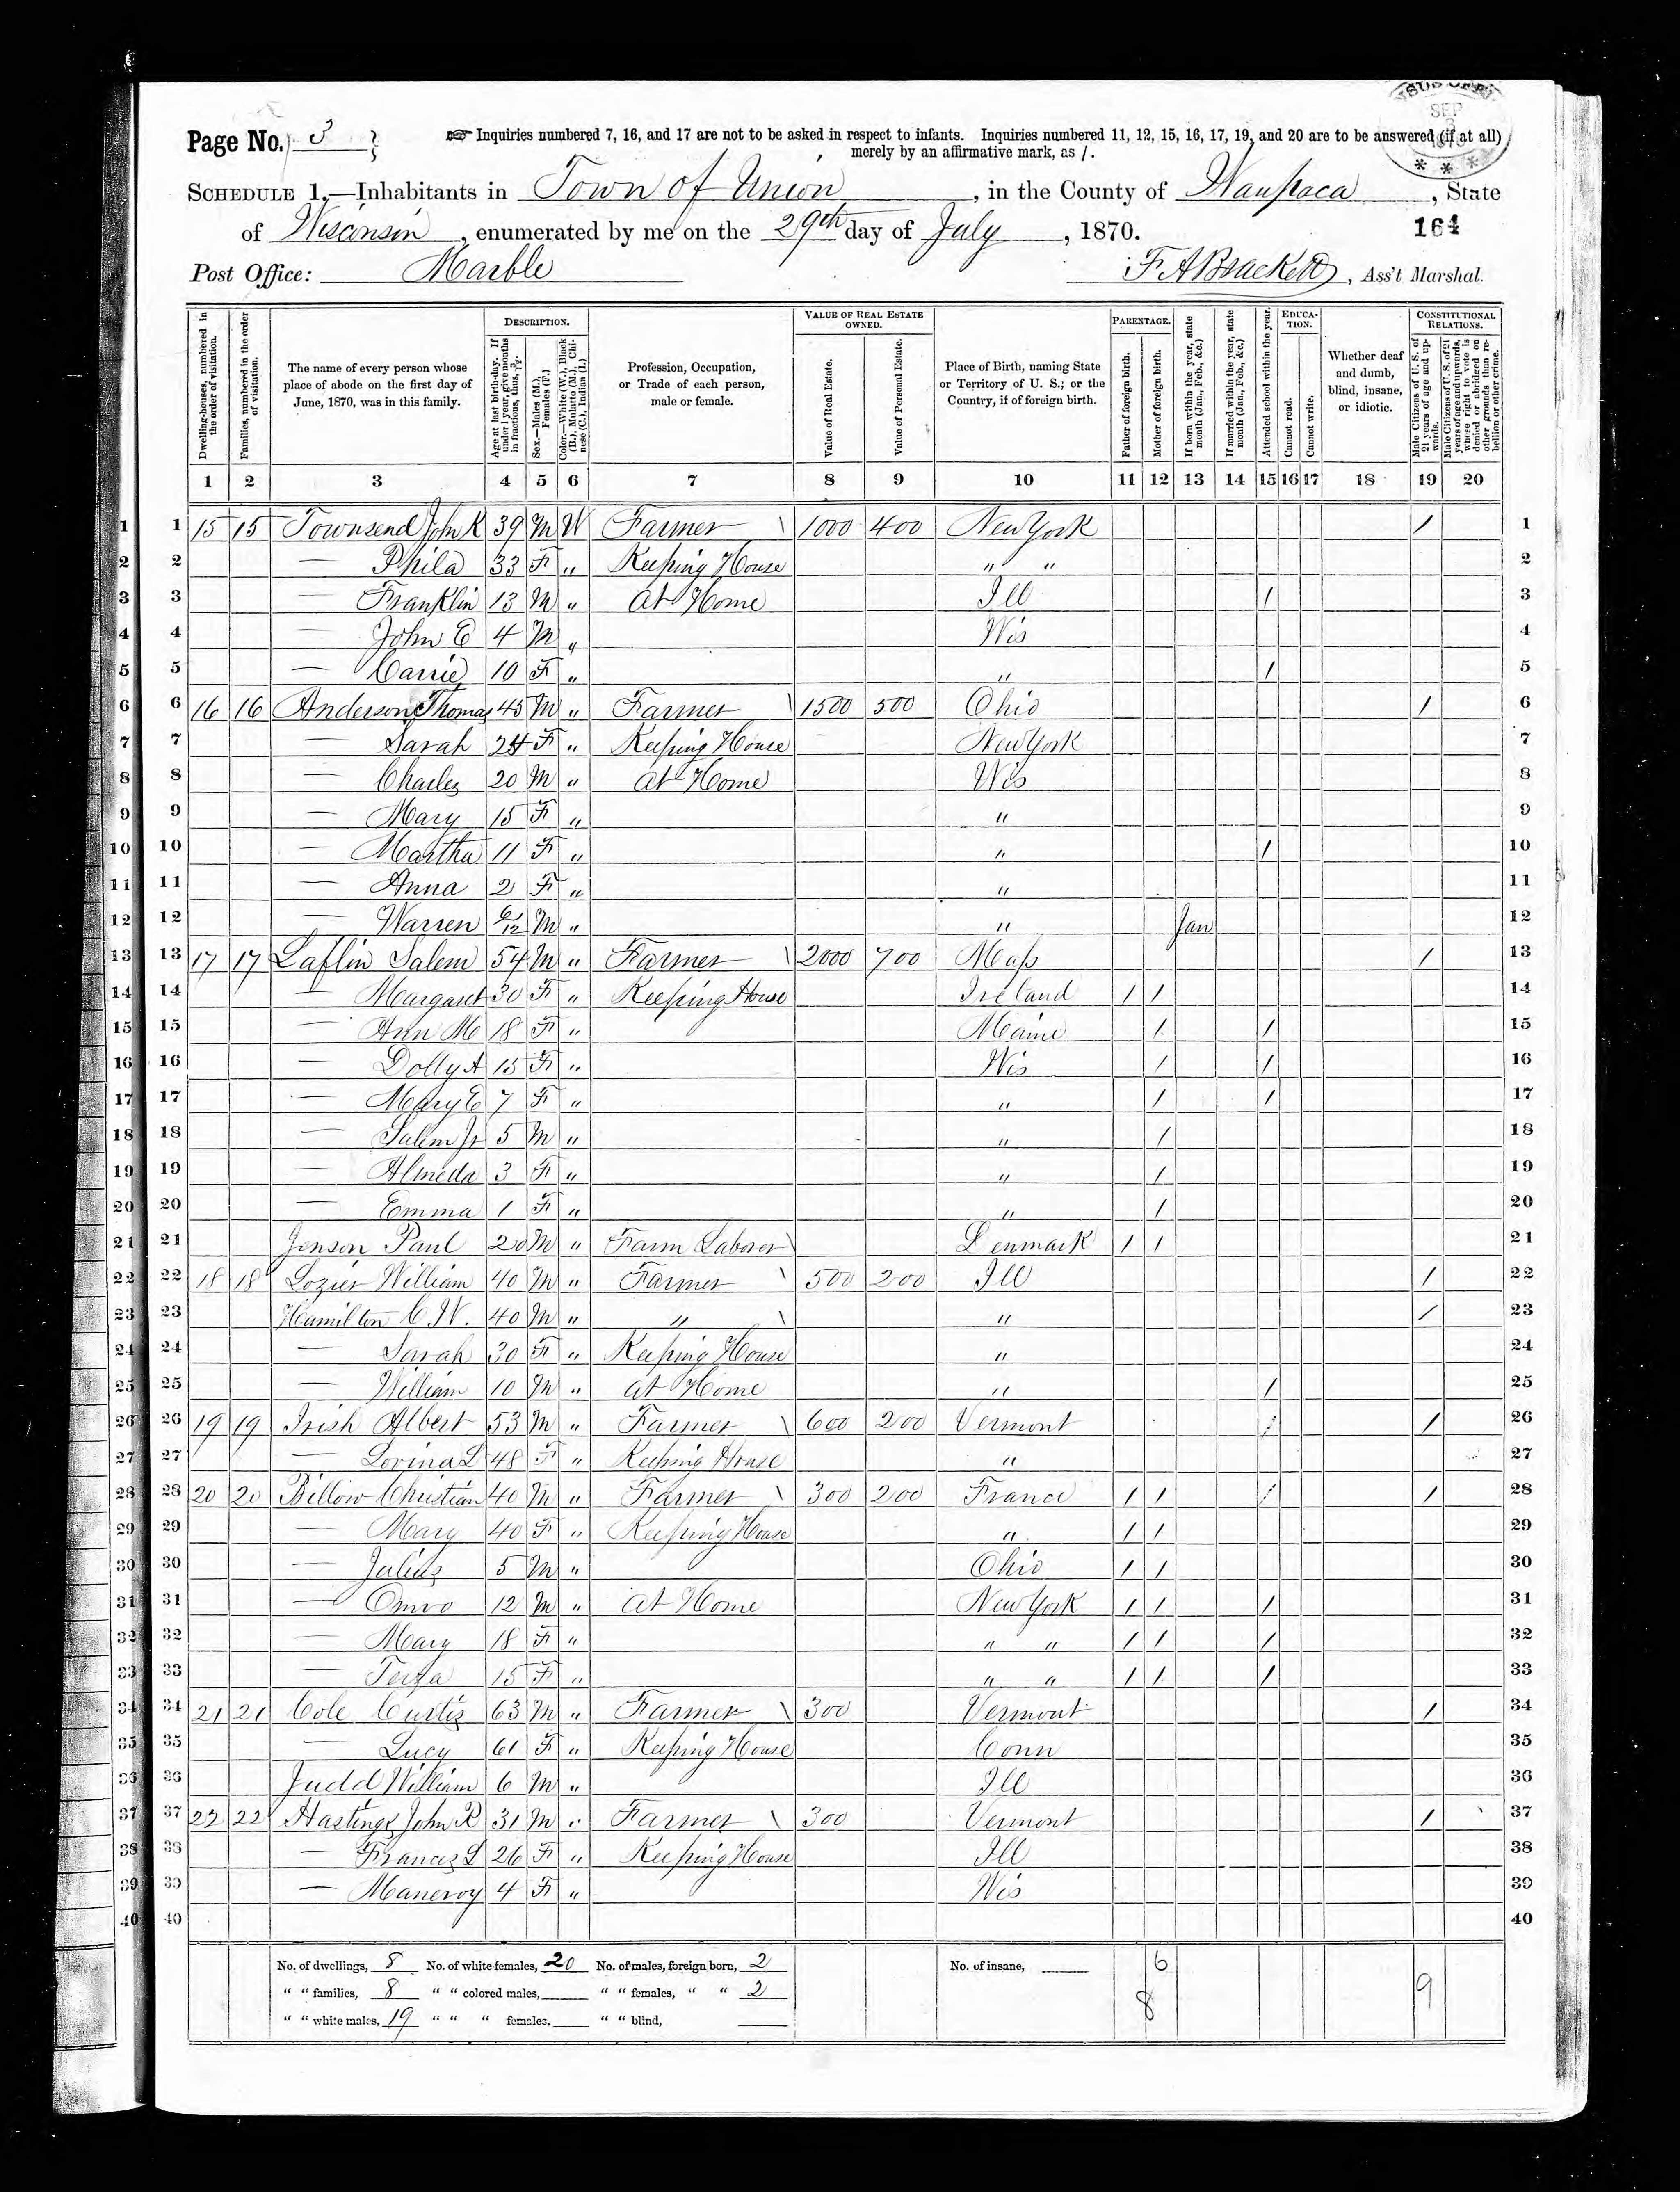 Page No. 3
☞ Inquiries numbered 7, 16, and 17 are not to be asked in respect to infants. Inquiries numbered 11, 12, 15, 16, 17, 19, and 20 are to be answered (if at all)
merely by an affirmative mark, as /.
SCHEDULE 1.—Inhabitants in Town of Union, in the County of Waupaca, State
of Wisconsin, enumerated by me on the 29th day of July, 1870.
164
Post Office: Marble
F. A. Brackett, Ass't Marshal.
Dwelling-houses, numbered in the order of visitation.
Families, numbered in the order of visitation.
The name of every person whose place of abode on the first day of June, 1870, was in this family.
DESCRIPTION.
Age at last birth-day. If under 1 year, give months in fractions, thus, 3/12.
Sex.—Males (M.), Females (F.)
Color.—White (W.), Black (B.), Mulatto (M.), Chinese (C.), Indian (I.)
Profession, Occupation, or Trade of each person, male or female.
VALUE OF REAL ESTATE OWNED.
Value of Real Estate.
Value of Personal Estate.
Place of Birth, naming State or Territory of U. S.; or the Country, if of foreign birth.
PARENTAGE.
Father of foreign birth.
Mother of foreign birth.
If born within the year, state month (Jan., Feb., &c.)
If married within the year, state month (Jan., Feb., &c.)
Attended school within the year.
EDUCATION.
Cannot read.
Cannot write.
Whether deaf and dumb, blind, insane, or idiotic.
CONSTITUTIONAL RELATIONS.
Male Citizens of U. S. of 21 years of age and upwards.
Male Citizens of U. S. of 21 years of age and upwards, whose right to vote is denied or abridged on other grounds than rebellion or other crime.
1 2 3 4 5 6 7 8 9 10 11 12 13 14 15 16 17 18 19 20
1 1 15 15 Townsend John K 39 M W Farmer \ 1000 400 New York / 1
2 2 — Phila 33 F " Keeping House " " 2
3 3 — Franklin 13 M " At Home Ill / 3
4 4 — John E 4 M " Wis 4
5 5 — Carrie 10 F " " / 5
6 6 16 16 Anderson Thomas 45 M " Farmer \ 1500 500 Ohio / 6
7 7 — Sarah 24 F " Keeping House New York 7
8 8 — Charles 20 M " At Home Wis 8
9 9 — Mary 15 F " " 9
10 10 — Martha 11 F " " / 10
11 11 — Anna 2 F " " 11
12 12 — Warren 6/12 M " " Jan 12
13 13 17 17 Laflin Salem 54 M " Farmer \ 2000 700 Mass / 13
14 14 — Margaret 30 F " Keeping House Ireland / / 14
15 15 — Ann M 18 F " Maine / / 15
16 16 — Dolly A 15 F " Wis / / 16
17 17 — Mary E 7 F " " / / 17
18 18 — Salem Jr 5 M " " / 18
19 19 — Almeda 3 F " " / 19
20 20 — Emma 1 F " " / 20
21 21 Jenson Paul 20 M " Farm Laborer \ Denmark / / 21
22 22 18 18 Lozier William 40 M " Farmer \ 500 200 Ill / 22
23 23 Hamilton C. W. 40 M " " \ " / 23
24 24 — Sarah 30 F " Keeping House " 24
25 25 — William 10 M " At Home " / 25
26 26 19 19 Irish Albert 53 M " Farmer \ 600 200 Vermont / / 26
27 27 — Lovina L 48 F " Keeping House " 27
28 28 20 20 Billow Christian 40 M " Farmer \ 300 200 France / / / / 28
29 29 — Mary 40 F " Keeping House " / / 29
30 30 — Julius 5 M " Ohio / / 30
31 31 — Omro 12 M " At Home New York / / / 31
32 32 — Mary 18 F " " " / / / 32
33 33 — Terza 15 F " " " / / / 33
34 34 21 21 Cole Curtis 63 M " Farmer \ 300 Vermont / 34
35 35 — Lucy 61 F " Keeping House Conn 35
36 36 Judd William 6 M " Ill 36
37 37 22 22 Hastings John R 31 M " Farmer \ 300 Vermont / 37
38 38 — Frances L 26 F " Keeping House Ill 38
39 39 — Maneroy 4 F " Wis 39
40 40 40
No. of dwellings, 8 No. of white females, 20 No. of males, foreign born, 2 No. of insane, 6
" " families, 8 " " colored males, " " females, " " 2 8 9
" " white males, 19 " " " females, " " blind,